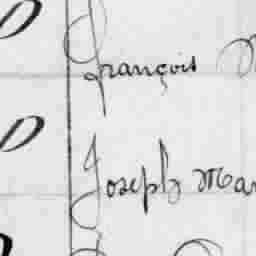 D François
D Joseph Mar